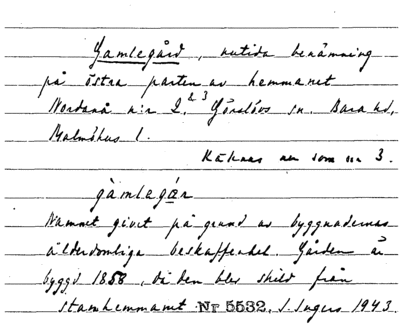 Gamlegård, nutida benämning
på östra parten av hemmanet
Nordanå n:r 2 & 3 Görslövs sn. Bara hd,
Malmöhus l.
Räknas nu som nr 3.
gàmlegá̱rn
Namnet givet på grund av byggnadernas
ålderdomliga beskaffenhet. Gården är
byggd 1858, då den blev skild från
stamhemmanet Nr 5532. I. Ingers 1943.